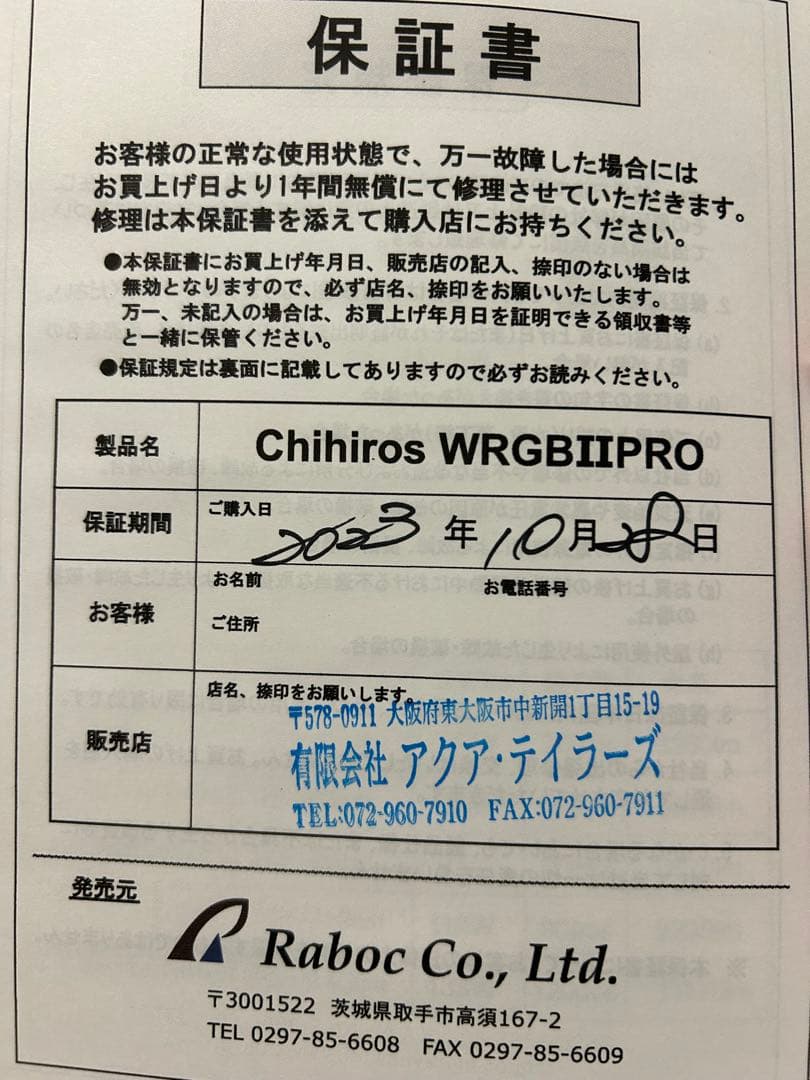 保証書
お客様の正常な使用状態で、万一故障した場合には
お買上げ日より1年間無償にて修理させていただきます。
修理は本保証書を添えて購入店にお持ちください。
●本保証書にお買上げ年月日、販売店の記入、捺印のない場合は
無効となりますので、必ず店名、捺印をお願いいたします。
万一、未記入の場合は、お買上げ年月日を証明できる領収書等
と一緒に保管ください。
●保証規定は裏面に記載してありますので必ずお読みください。
製品名 Chihiros WRGBⅡPRO
保証期間 ご購入日
2023年10月28日
お客様 お名前 お電話番号
ご住所
販売店 店名、捺印をお願いします。
〒578-0911 大阪府東大阪市中新開1丁目15-19
有限会社 アクア・テイラーズ
TEL:072-960-7910 FAX:072-960-7911
発売元
Raboc Co., Ltd.
〒3001522 茨城県取手市高須167-2
TEL 0297-85-6608 FAX 0297-85-6609